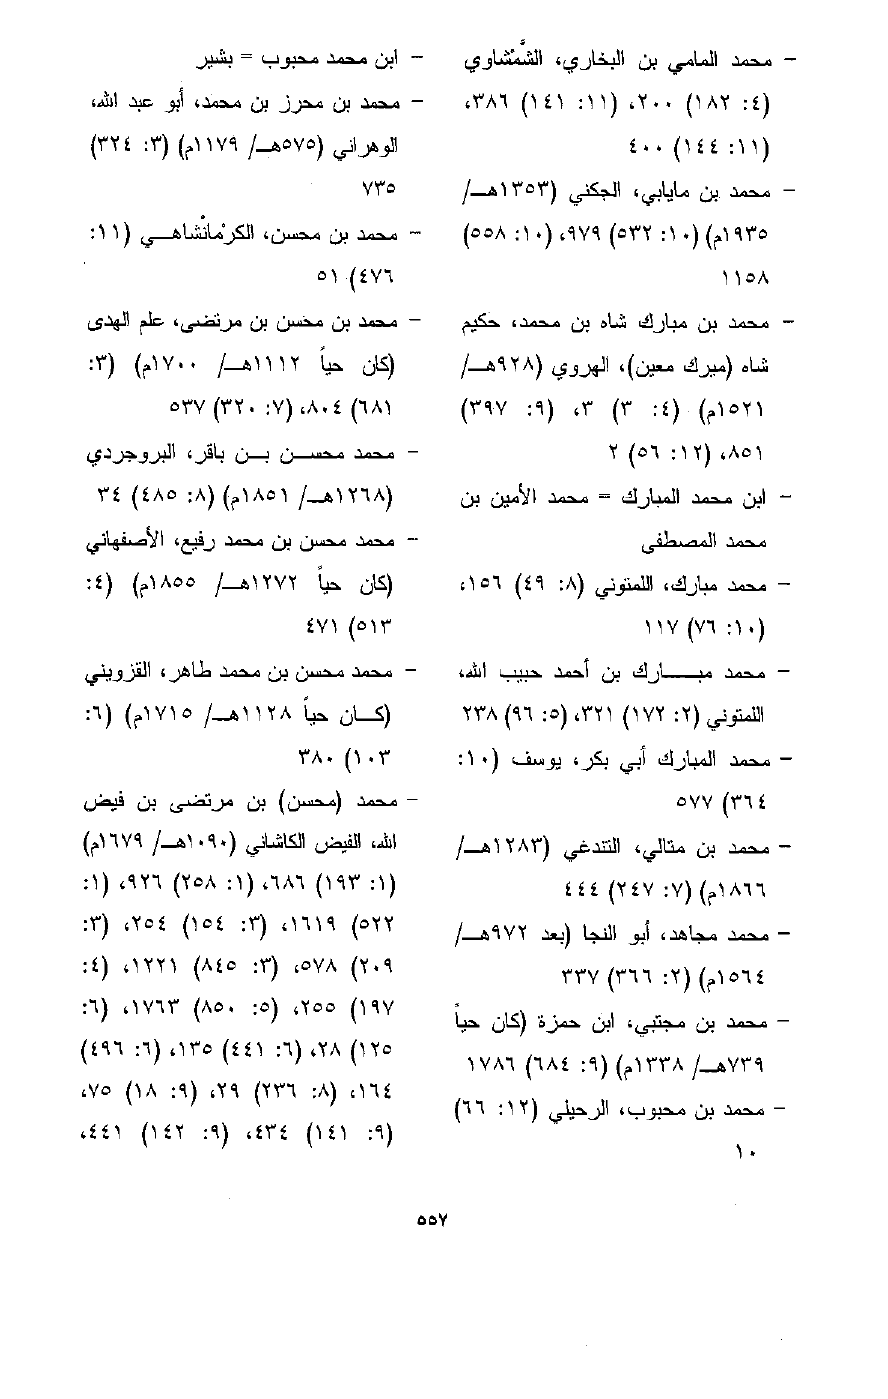 - محمد المامي بن البخاري، الشَّمْشاوي
(٤: ١٨٢) ٢٠٠، (١١: ١٤١) ٣٨٦،
(١١: ١٤٤) ٤٠٠
- محمد بن مايابي، الجكني (١٣٥٣هـ/
١٩٣٥م) (١٠: ٥٣٢) ٩٧٩، (١٠: ٥٥٨)
١١٥٨
- محمد بن مبارك شاه بن محمد، حكيم
شاه (ميرك معين)، الهروي (٩٢٨هـ/
١٥٢١م) (٤: ٣) ٣، (٩: ٣٩٧)
٨٥١، (١٢: ٥٦) ٢
- ابن محمد المبارك = محمد الأمين بن
محمد المصطفى
- محمد مبارك، اللمتوني (٨: ٤٩) ١٥٦،
(١٠: ٧٦) ١١٧
- محمد مبارك بن أحمد حبيب الله،
اللمتوني (٢: ١٧٢) ٣٢١، (٥: ٩٦) ٢٣٨
- محمد المبارك أبي بكر، يوسف (١٠:
٣٦٤) ٥٧٧
- محمد بن متالي، التندغي (١٢٨٣هـ/
١٨٦٦م) (٧: ٢٤٧) ٤٤٤
- محمد مجاهد، أبو النجا (بعد ٩٧٢هـ/
١٥٦٤م) (٢: ٣٦٦) ٣٣٧
- محمد بن مجتبي، ابن حمزة (كان حياً
٧٣٩هـ/ ١٣٣٨م) (٩: ٦٨٤) ١٧٨٦
- محمد بن محبوب، الرحيلي (١٢: ٦٦)
١٠
- ابن محمد محبوب = بشير
- محمد بن محرز بن محمد، أبو عبد الله،
الوهراني (٥٧٥هـ/ ١١٧٩م) (٣: ٣٢٤)
٧٣٥
- محمد بن محسن، الكرْمانْشاهي (١١:
٤٧٦) ٥١
- محمد بن محسن بن مرتضى، علم الهدى
(كان حياً ١١١٢هـ/ ١٧٠٠م) (٣:
٦٨١) ٨٠٤، (٧: ٣٢٠) ٥٣٧
- محمد محسن بن باقر، البروجردي
(١٢٦٨هـ/ ١٨٥١م) (٨: ٤٨٥) ٣٤
- محمد محسن بن محمد رفيع، الأصفهاني
(كان حياً ١٢٧٢هـ/ ١٨٥٥م) (٤:
٥١٣) ٤٧١
- محمد محسن بن محمد طاهر، القزويني
(كان حياً ١١٢٨هـ/ ١٧١٥م) (٦:
١٠٣) ٣٨٠
- محمد (محسن) بن مرتضى بن فيض
الله، الفيض الكاشاني (١٠٩٠هـ/ ١٦٧٩م)
(١: ١٩٣) ٦٨٦، (١: ٢٥٨) ٩٢٦، (١:
٥٢٢) ١٦١٩، (٣: ١٥٤) ٢٥٤، (٣:
٢٠٩) ٥٧٨، (٣: ٨٤٥) ١٢٢١، (٤:
١٩٧) ٢٥٥، (٥: ٨٥٠) ١٧٦٣، (٦:
١٢٥) ٢٨، (٦: ٤٤١) ١٣٥، (٦: ٤٩٦)
١٦٤، (٨: ٢٣٦) ٢٩، (٩: ١٨) ٧٥،
(٩: ١٤١) ٤٣٤، (٩: ١٤٢) ٤٤١،
٥٥٧